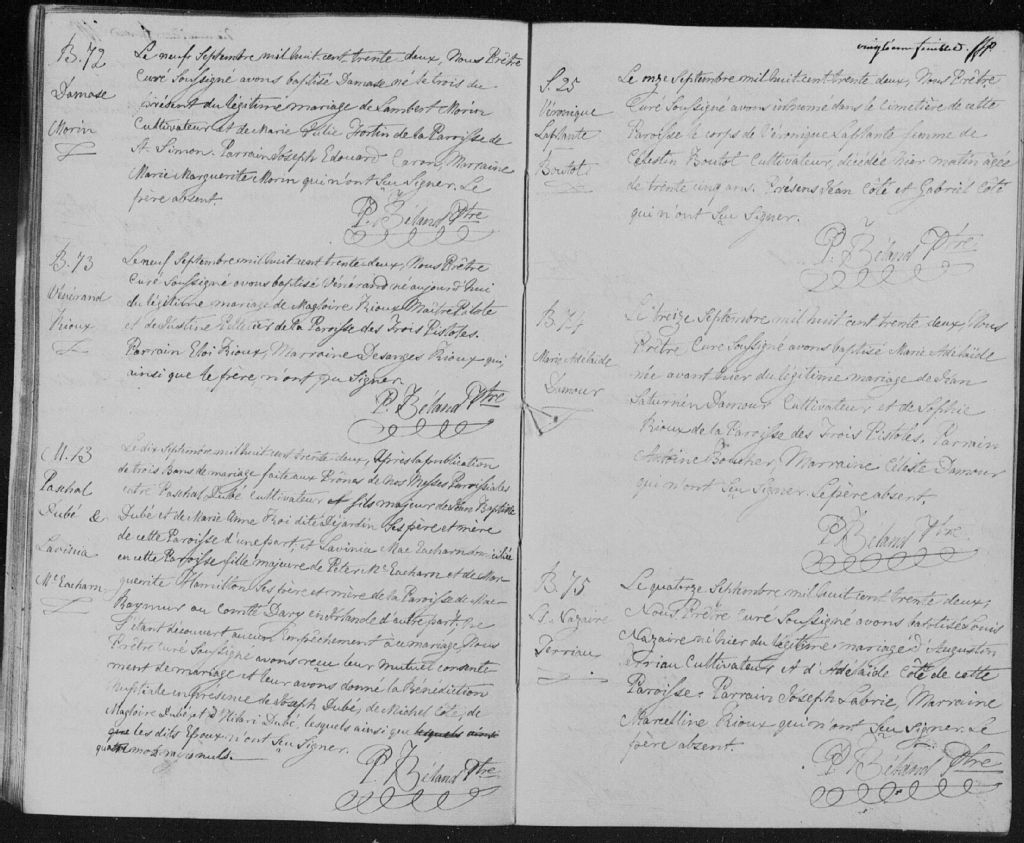 B. 72
Damase
Morin
Le neuf Septembre mil huit cent trente deux, Nous Prêtre
Curé Soussigné avons baptisé Damase né le trois du
présent du légitime mariage de Lambert Morin
Cultivateur et de Marie Fortin de la Paroisse de
St. Simon. Parrain Joseph Edouard Caron, Marraine
Marie Marguerite Morin qui n'ont Sçu Signer. Le
père absent.
P. Béland Ptre
B. 73
Vénérand
Rioux
Le neuf Septembre mil huit cent trente deux, Nous Prêtre
Curé Soussigné avons baptisé Vénérand né aujourd'hui
du légitime mariage de Magloire Rioux Maître Pilote
et de Justine Pelletier de la Paroisse des Trois Pistoles.
Parrain Eloi Rioux, Marraine Desanges Rioux qui
ainsi que le père n'ont pu Signer.
P. Béland Ptre
M. 13
Paschal
Dubé &
Lavinia
Mc Eacharn
Le dix Septembre mil huit cent trente deux, Après la publication
de trois Bans de mariage faite aux Prônes de nos Messes Paroissiales
entre Paschal Dubé Cultivateur et fils majeur de Jean Baptiste
Dubé et de Marie Anne Roi dite Déjardin Ses père et mère
de cette Paroisse d'une part; et Lavinia Mac Eacharn domiciliée
en cette Paroisse fille majeure de Peter Mc Eacharn et de Mar-
guerite Hamilton Ses père et mère de la Paroisse de Mac-
au comté Dary en Irlande d'autre part; Ne
S'étant découvert aucun empêchement à ce mariage, Nous
Prêtre curé Soussigné avons reçu leur mutuel consente-
ment de mariage et leur avons donné la Bénédiction
Nuptiale en présence de Joseph Dubé, de Michel Coté, de
Magloire Dubé et d'Hilari Dubé, lesquels ainsi que lesquels ainsi
que les dits Epoux n'ont Sçu Signer.
quatre mots rayés nuls.
P. Béland Ptre
vingtième feuille.
S. 25
Véronique
Laplante
Boutot
Le onze Septembre mil huit cent trente deux, Nous Prêtre
Curé Soussigné avons inhumé dans le Cimetière de cette
Paroisse le corps de Véronique Laplante femme de
Célestin Boutot Cultivateur, décédée hier matin âgée
de trente cinq ans. Présens Jean Côté et Gabriel Côté
qui n'ont Sçu Signer.
P. Béland Ptre
B. 74
Marie Adélaïde
Damour
Le treize Septembre mil huit cent trente deux, Nous
Prêtre Curé Soussigné avons baptisé Marie Adélaïde
née avant hier du légitime mariage de Jean
Saturnin Damour Cultivateur et de Sophie
Rioux de la Paroisse des Trois Pistoles. Parrain
Antoine Boucher, Marraine Céleste Damour
qui n'ont Sçu Signer. Le père absent
P. Béland Ptre
B. 75
Ls. Nazaire
Terriau
Le quatorze Septembre mil huit cent trente deux,
Nous Prêtre Curé Soussigné avons baptisé Louis
Nazaire né hier du légitime mariage d'Augustin
Terriau Cultivateur et d'Adélaïde Côté de cette
Paroisse. Parrain Joseph Labrie, Marraine
Marcelline Rioux qui n'ont Sçu Signer. Le
père absent.
P. Béland Ptre